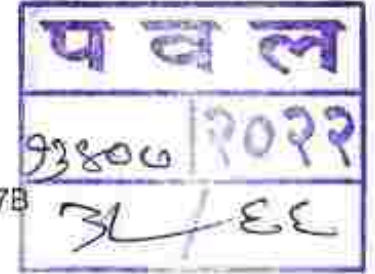 प व ल
१३४०७ २०२२
7B
३८ / ६६